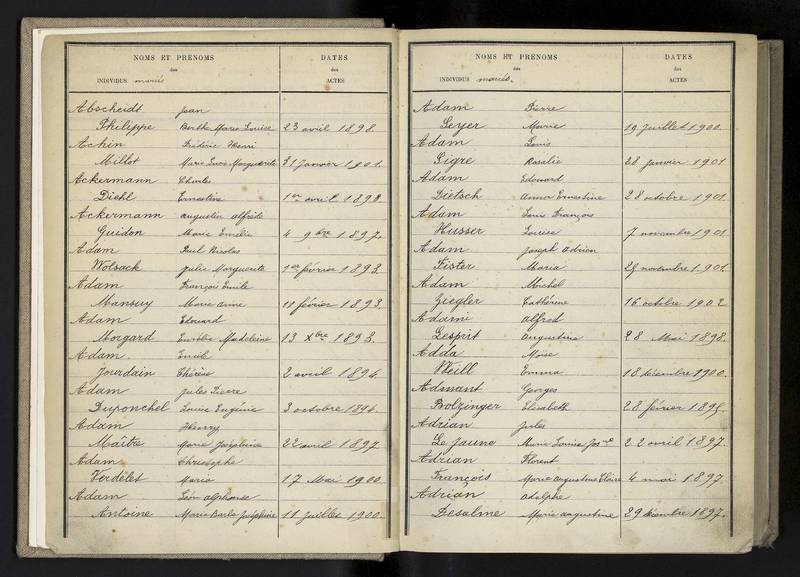 NOMS ET PRÉNOMS DATES
des des
INDIVIDUS mariés ACTES
Abscheidt Jean
Philippe Berthe Marie Louise 23 avril 1898.
Achin Frédéric Henri
Millot Marie Lucie Marguerite 31 janvier 1901.
Ackermann Charles
Diehl Ernestine 1er avril 1898.
Ackermann Augustin Alfred
Guidon Marie Emélie 4 9bre 1897.
Adam Paul Nicolas
Wolsack Julie Marguerite 1er février 1893.
Adam François Emile
Mansuy Marie Anne 11 février 1893.
Adam Edouard
Morgard Eurélie Madeleine 13 Xbre 1893.
Adam. Emile
Jourdain Thérèse 2 avril 1894.
Adam Jules Pierre
Duponchel Louise Eugénie 3 octobre 1894.
Adam Henry
Maître Marie Joséphine 22 avril 1897.
Adam Christophe
Verdelet Maria 17 Mai 1900.
Adam Léon Alphonse
Antoine Marie Barbe Joséphine 11 Juillet 1900.
NOMS ET PRÉNOMS DATES
des des
INDIVIDUS mariés. ACTES
Adam Pierre
Leyer Marie 19 Juillet 1900.
Adam Louis
Sigre Rosalie 28 janvier 1901
Adam Edouard
Dietsch Anna Ernestine 28 octobre 1901.
Adam Louis François
Husser Louise 7 novembre 1901.
Adam Joseph Adrien
Fister Maria 28 novembre 1901.
Adam Michel
Ziegler Cathérine 16 octobre 1902.
Adami Alfred
Lesprit Augustine 28 Mai 1898.
Adda Moïse
Weill Emma 18 décembre 1900.
Admant Georges
Bolzinger Elisabeth 28 février 1895.
Adrian Jules
Le Jaune Marie Louise 22 avril 1897.
Adrian Florent
François Marie Augustine Claire 4 mai 1897
Adrian Adolphe
Desalme Marie Augustine 29 décembre 1897.